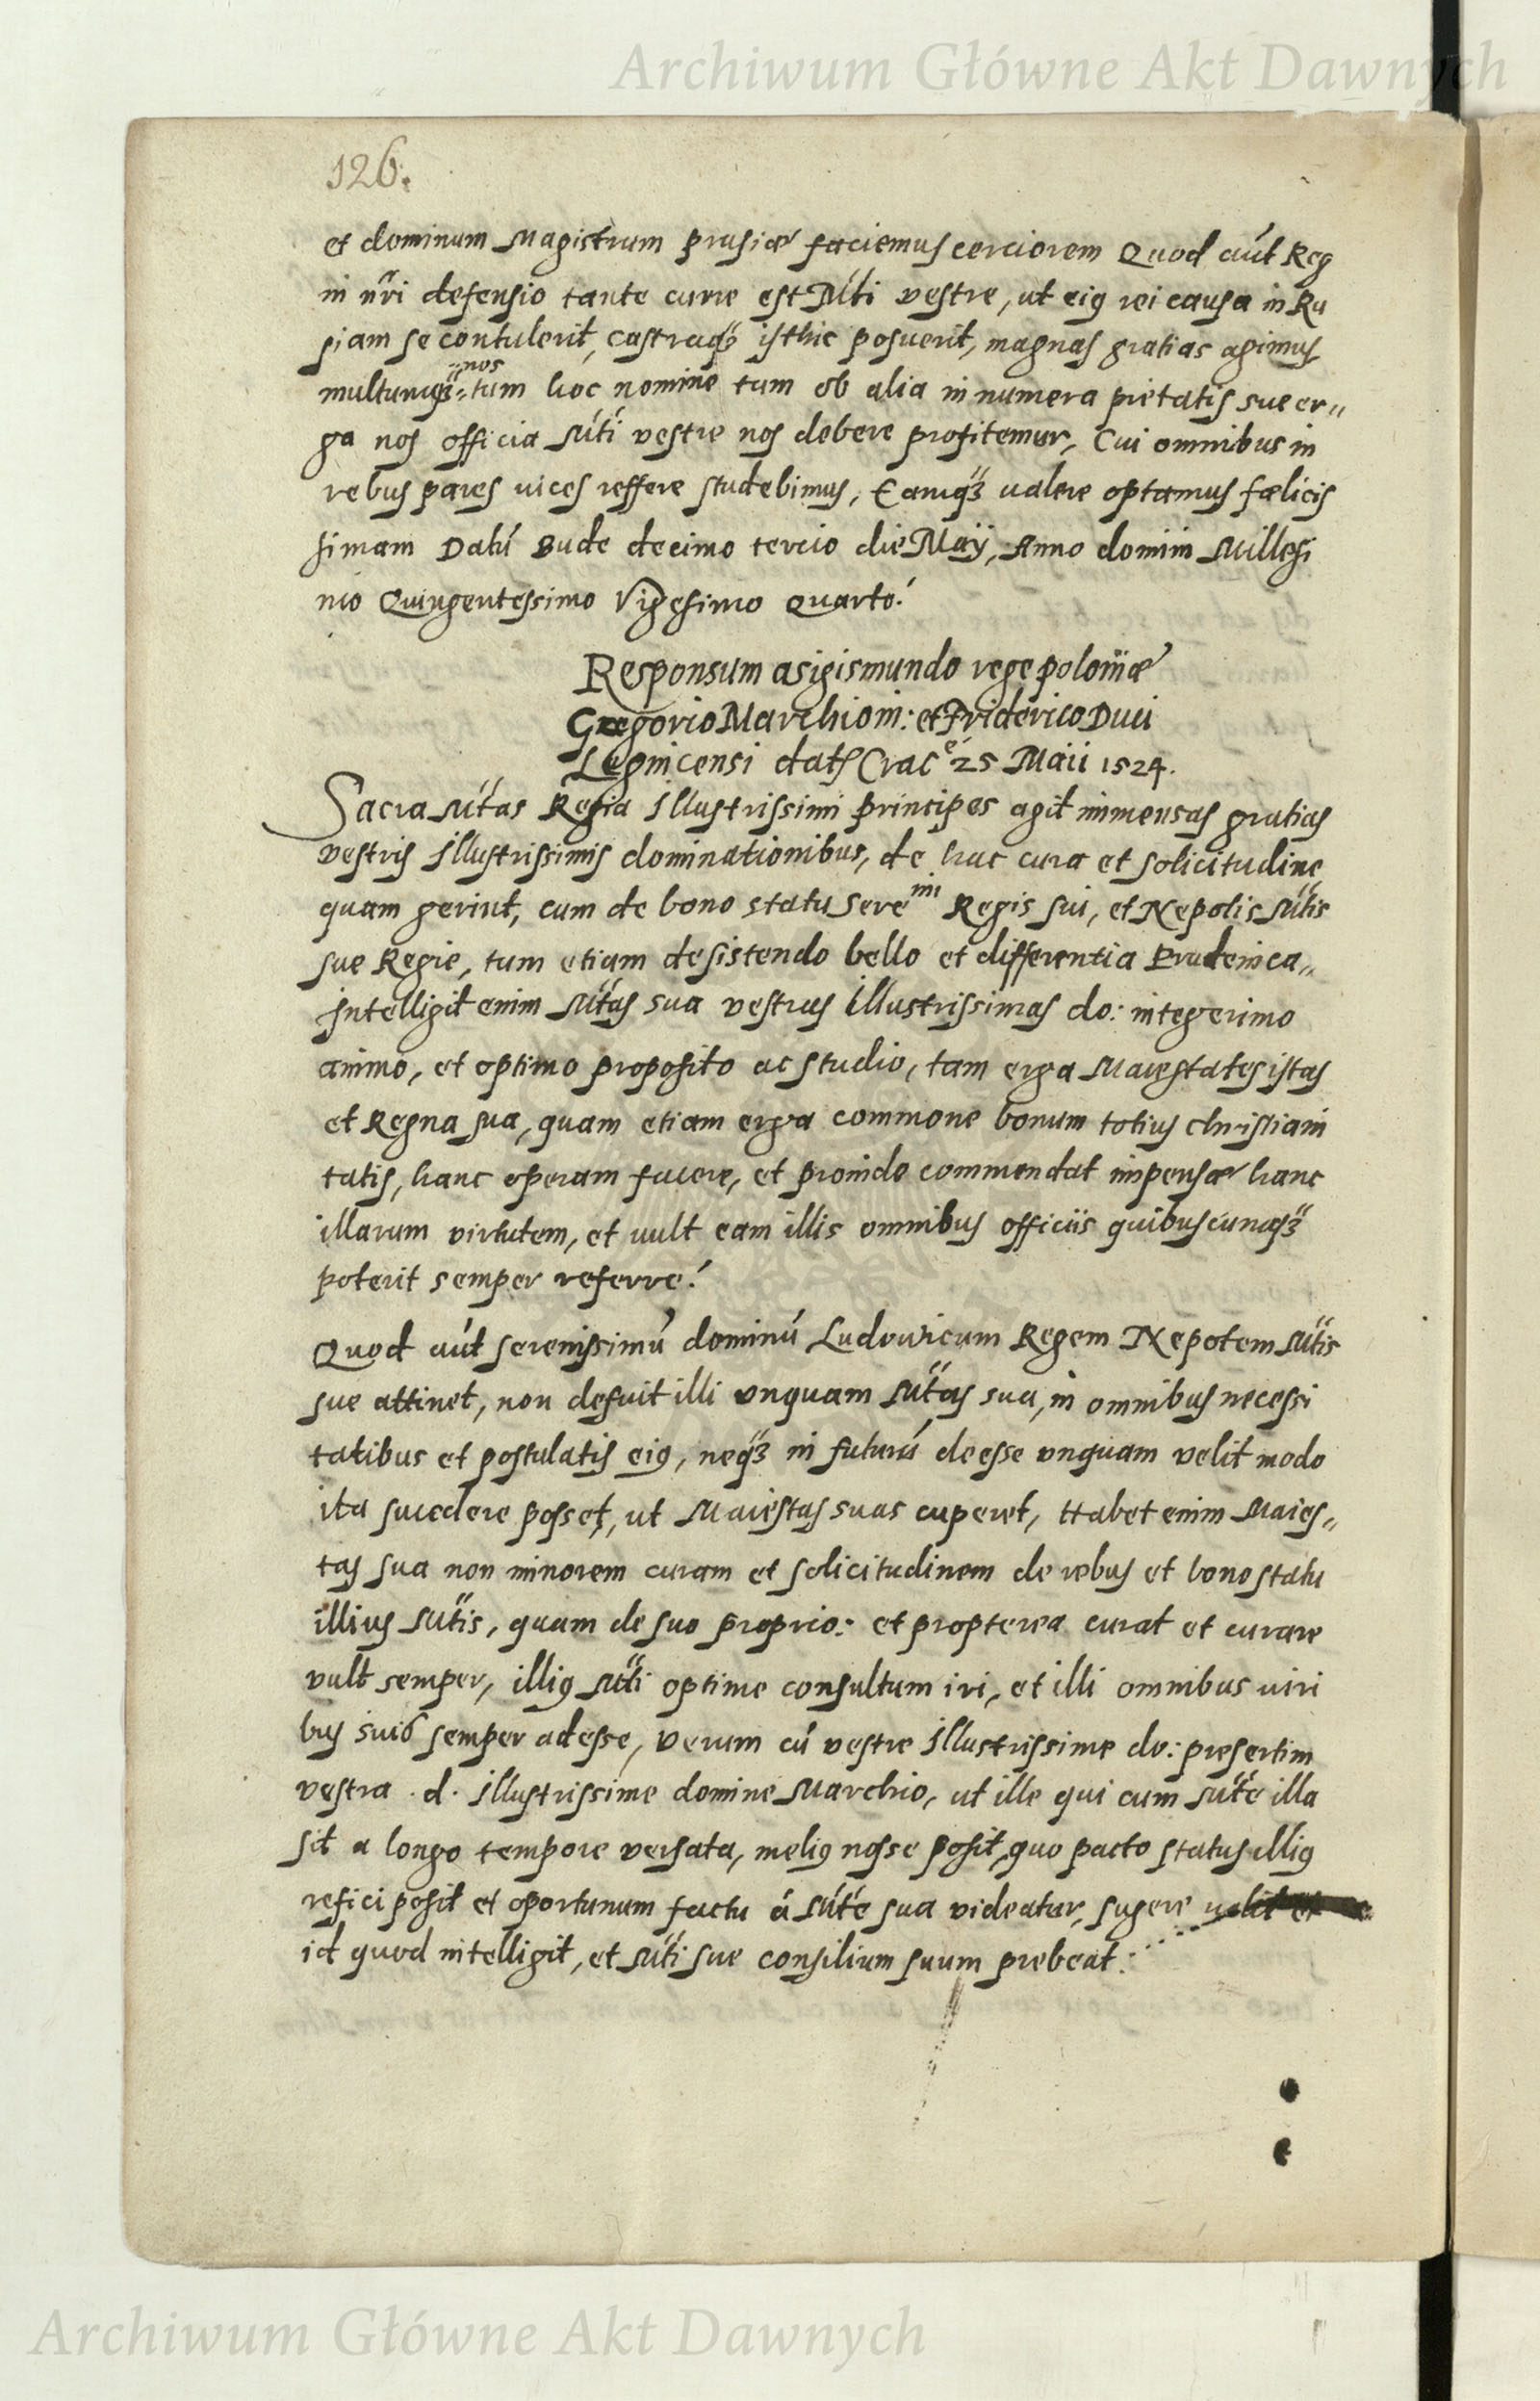 Archiwum Główne Akt Dawnych
126.
et dominum Magistrum prusiæ faciemus cerciorem Quod aut̃ Reg
ni nr̃i defensio tante curre est M̃ti vestre, ut eiꝰ rei causa in Ru
siam se contulerit, castraqꝫ isthic posuerit, magnas gratias agimus
multumqꝫ nos tum hoc nomine tum ob alia innumera pietatis sue er„
ga nos officia M̃ti vestre nos debere profitemur, Cui omnibus in
rebus pares uices reffere studebimus, Eamqꝫ ualere optamus fælicis
simam Datũ Bude decimo tercio die Maÿ, Anno domini Millesi
mo Quingentessimo Vigesimo Quarto.
Responsum a sigismundo rege poloniæ
Gregorio Marchioni: et Friderico Duci
Legnicensi dat Crac e 25 Maii 1524.
Sacra M̃tas Regia Illustrissimi principes agit immensas gratias
vestris Illustrissimis dominationibus, de hac cura et solicitudine
quam gerint, cum de bono statu Sere mi Regis sui, et Nepotis M̃tis
sue Regie, tum etiam de sistendo bello et differentia Prutenica„
Intelligit enim M̃tas sua vestras illustrissimas do: integerimo
animo, et optimo proposito ac studio, tam erga Maiestates istas
et Regna sua, quam etiam erga commone bonum totius christiani
tatis, hanc operam facere, et proinde commendat impensæ hanc
illarum virtutem, et uult eam illis omnibus officiis quibuscunqꝫ
poterit semper referre.
Quod aut̃ serenissimũ dominũ Ludovicum Regem Nepotem M̃tis
sue attinet, non defuit illi vnquam M̃tas sua, in omnibus necessi
tatibus et postulatis eiꝰ, neqꝫ in futurũ deesse vnquam velit modo
ita succedere posset, ut Maiestas suas cuperet, Habet enim Maies„
tas sua non minorem curam et solicitudinem de rebus et bono statu
illius M̃tis, quam de suo proprio: et propterea curat et curare
vult semper, illiꝰ M̃ti optime consultum iri, et illi omnibus uiri
bus suis semper adesse, verum cũ vestre Illustrissime do: presertim
vestra .d. Illustrissime domine Marchio, ut ille qui cum M̃te illa
sit a longo tempore versata, meliꝰ nosse possit, quo pacto status illiꝰ
refici possit et oportunum factu á M̃te sua videatur, sugere uelit et
id quod intelligit, et M̃ti sue consilium suum prebeat.
Archiwum Główne Akt Dawnych